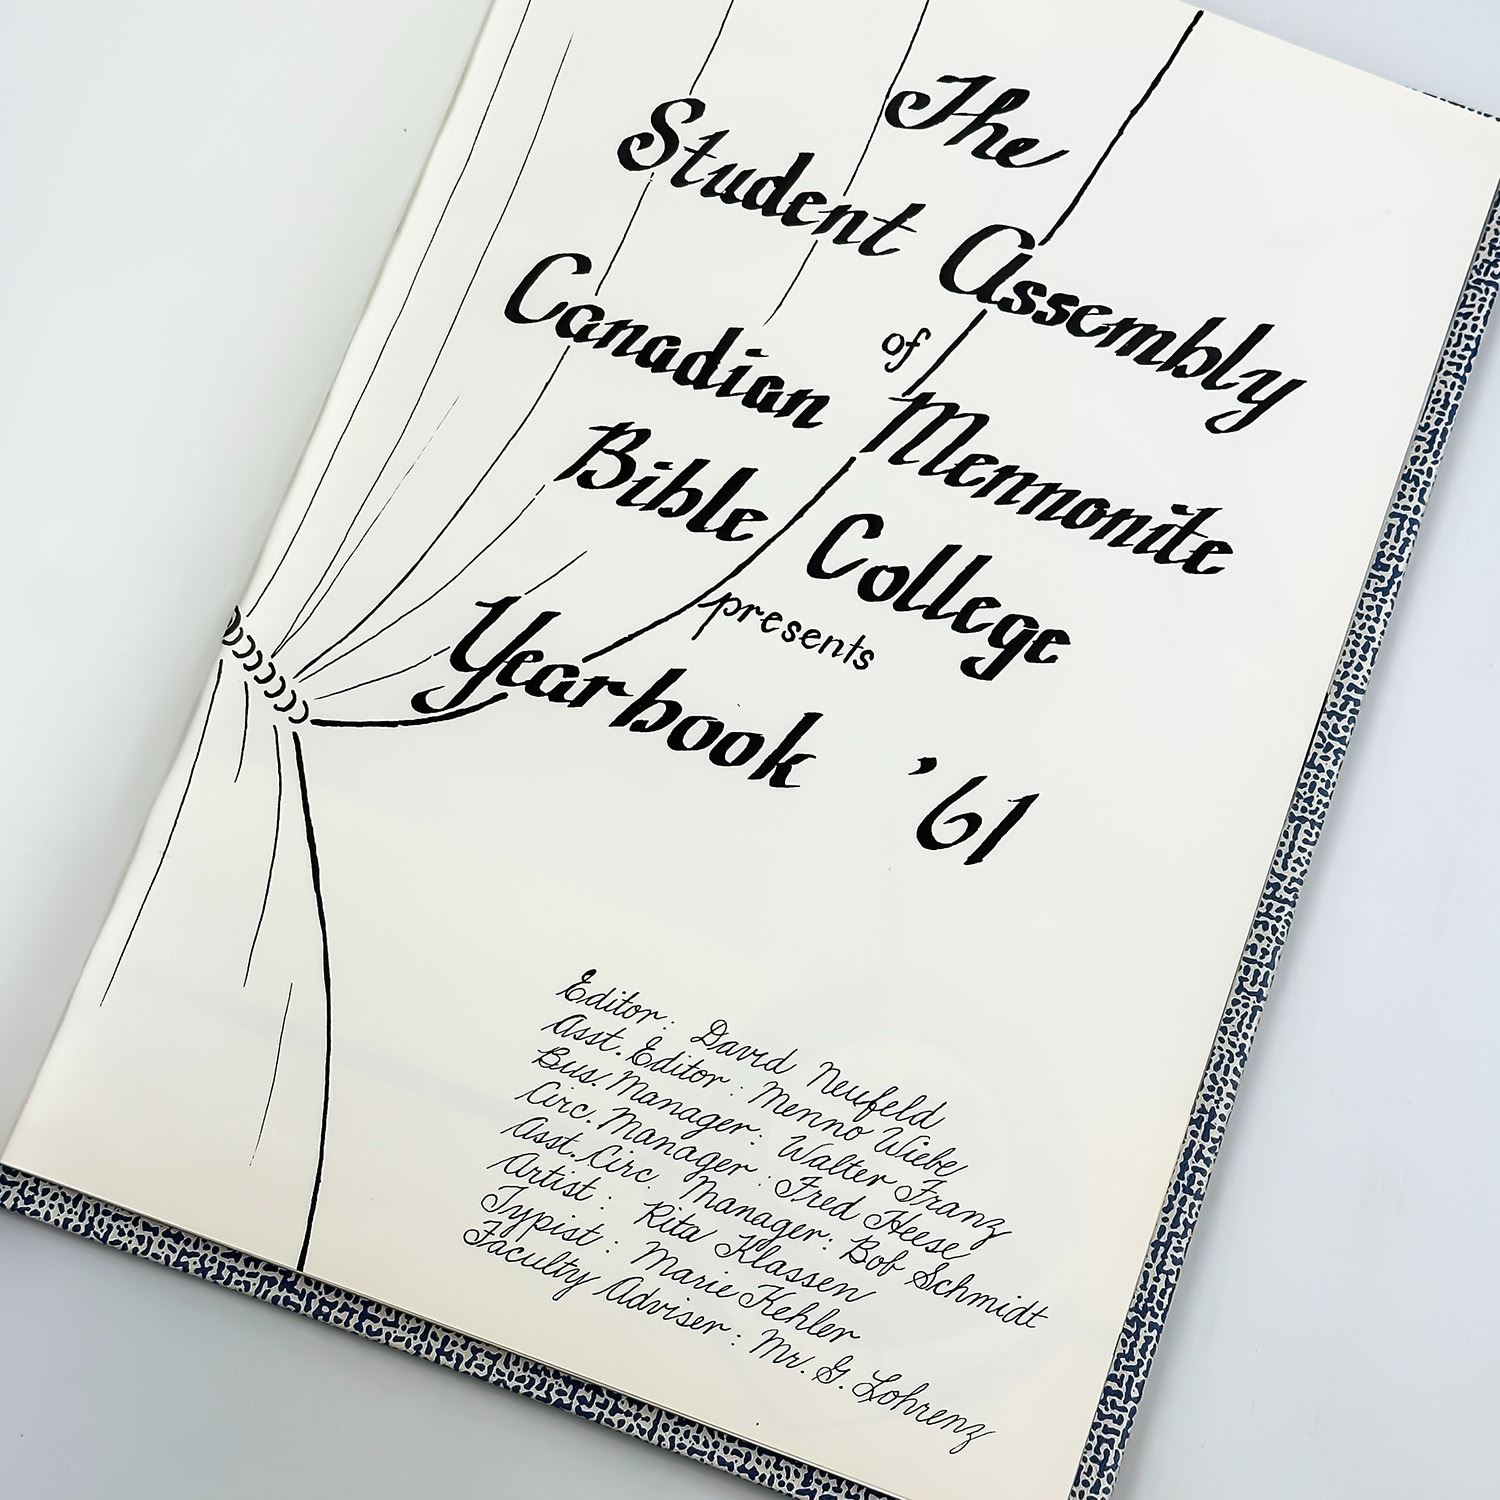 The
Student Assembly
of
Canadian Mennonite
Bible College
presents
Yearbook '61
Editor: David Neufeld
Asst. Editor: Menno Wiebe
Bus. Manager: Walter Franz
Circ. Manager: Fred Heese
Asst. Circ. Manager: Bob Schmidt
Artist: Rita Klassen
Typist: Marie Kehler
Faculty Adviser: Mr. G. Lohrenz